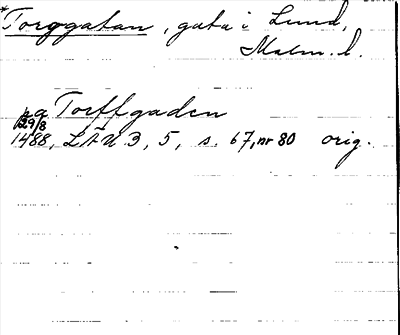 *Torggatan, gata i Lund,
Malm. l.
pa Torffgaden
29/8
1488, LÄU 3, 5, s. 67, nr 80 orig.